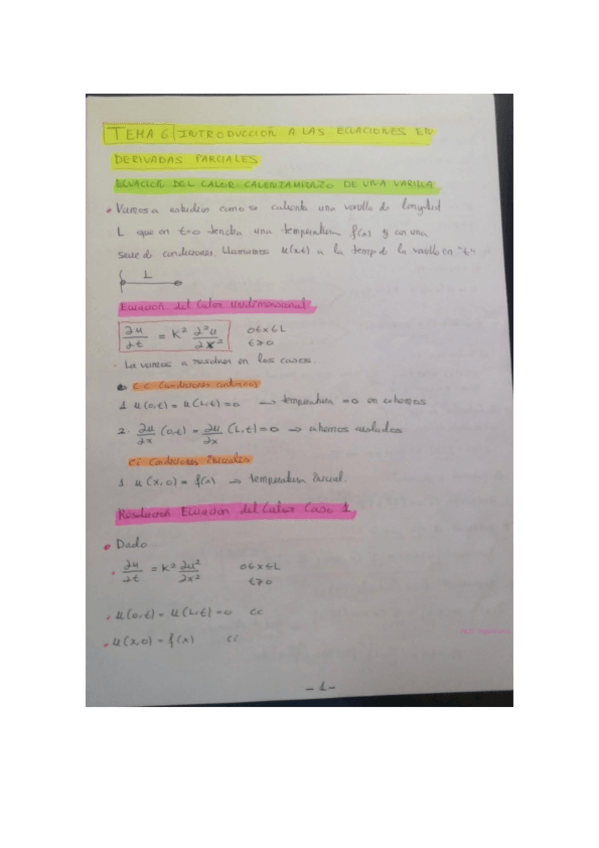 TEMA 6 INTRODUCCIÓN A LAS ECUACIONES EN
DERIVADAS PARCIALES
ECUACION DEL CALOR CALENTAMIENTO DE UNA VARILLA
• Vamos a estudiar como se calienta una varilla de longitud
L que en t=0 tendra una temperatura f(x) y con una
serie de condiciones. Llamamos u(x,t) a la temp de la varilla en "t"
L
Ecuacion del Calor Unidimensional
∂u/∂t = K² ∂²u/∂x² 0≤x≤L
t≥0
- La vamos a resolver en los casos...
• C.C Condiciones contorno
1. u(0,t) = u(L,t) = 0 → temperatura = 0 en extremos
2. ∂u/∂x (0,t) = ∂u/∂x (L,t) = 0 → extremos aislados
Ci Condiciones Iniciales
1. u(x,0) = f(x) → temperatura inicial.
Resolucion Ecuacion del Calor Caso 1
• Dado...
• ∂u/∂t = K² ∂u²/∂x² 0≤x≤L
t≥0
• u(0,t) = u(L,t) = 0 CC
• u(x,0) = f(x) Ci
- 1 -